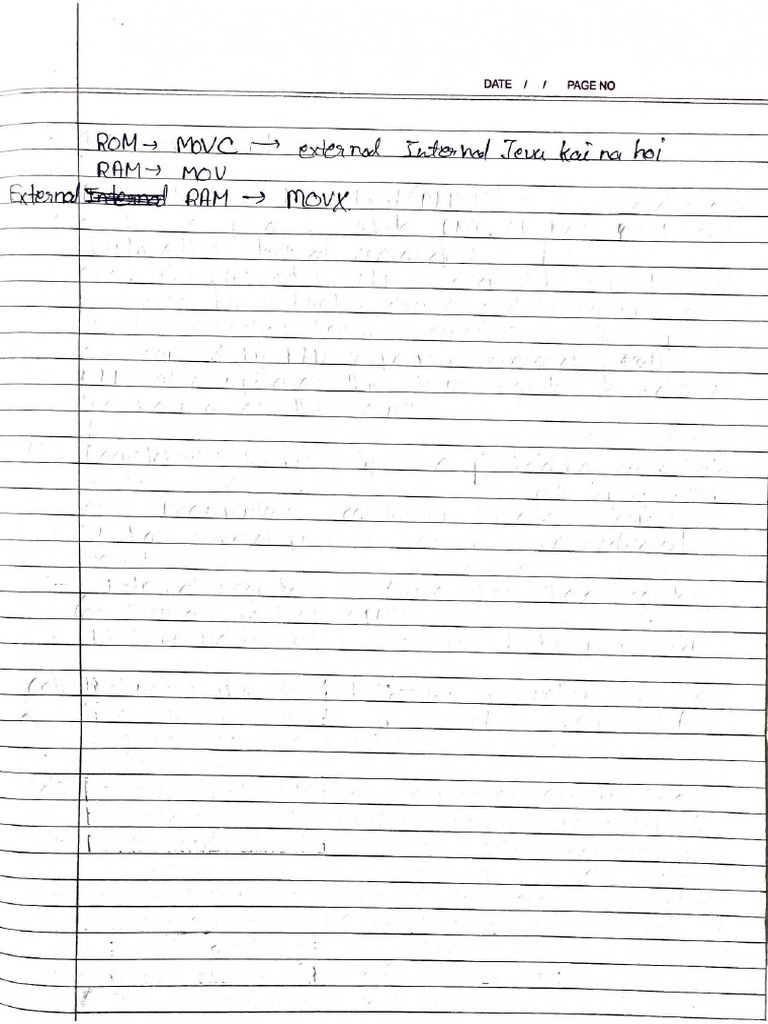 DATE / / PAGE NO
ROM → MOVC → external Internal Jevu kai na hoi
RAM → MOV
External Internal RAM → MOVX